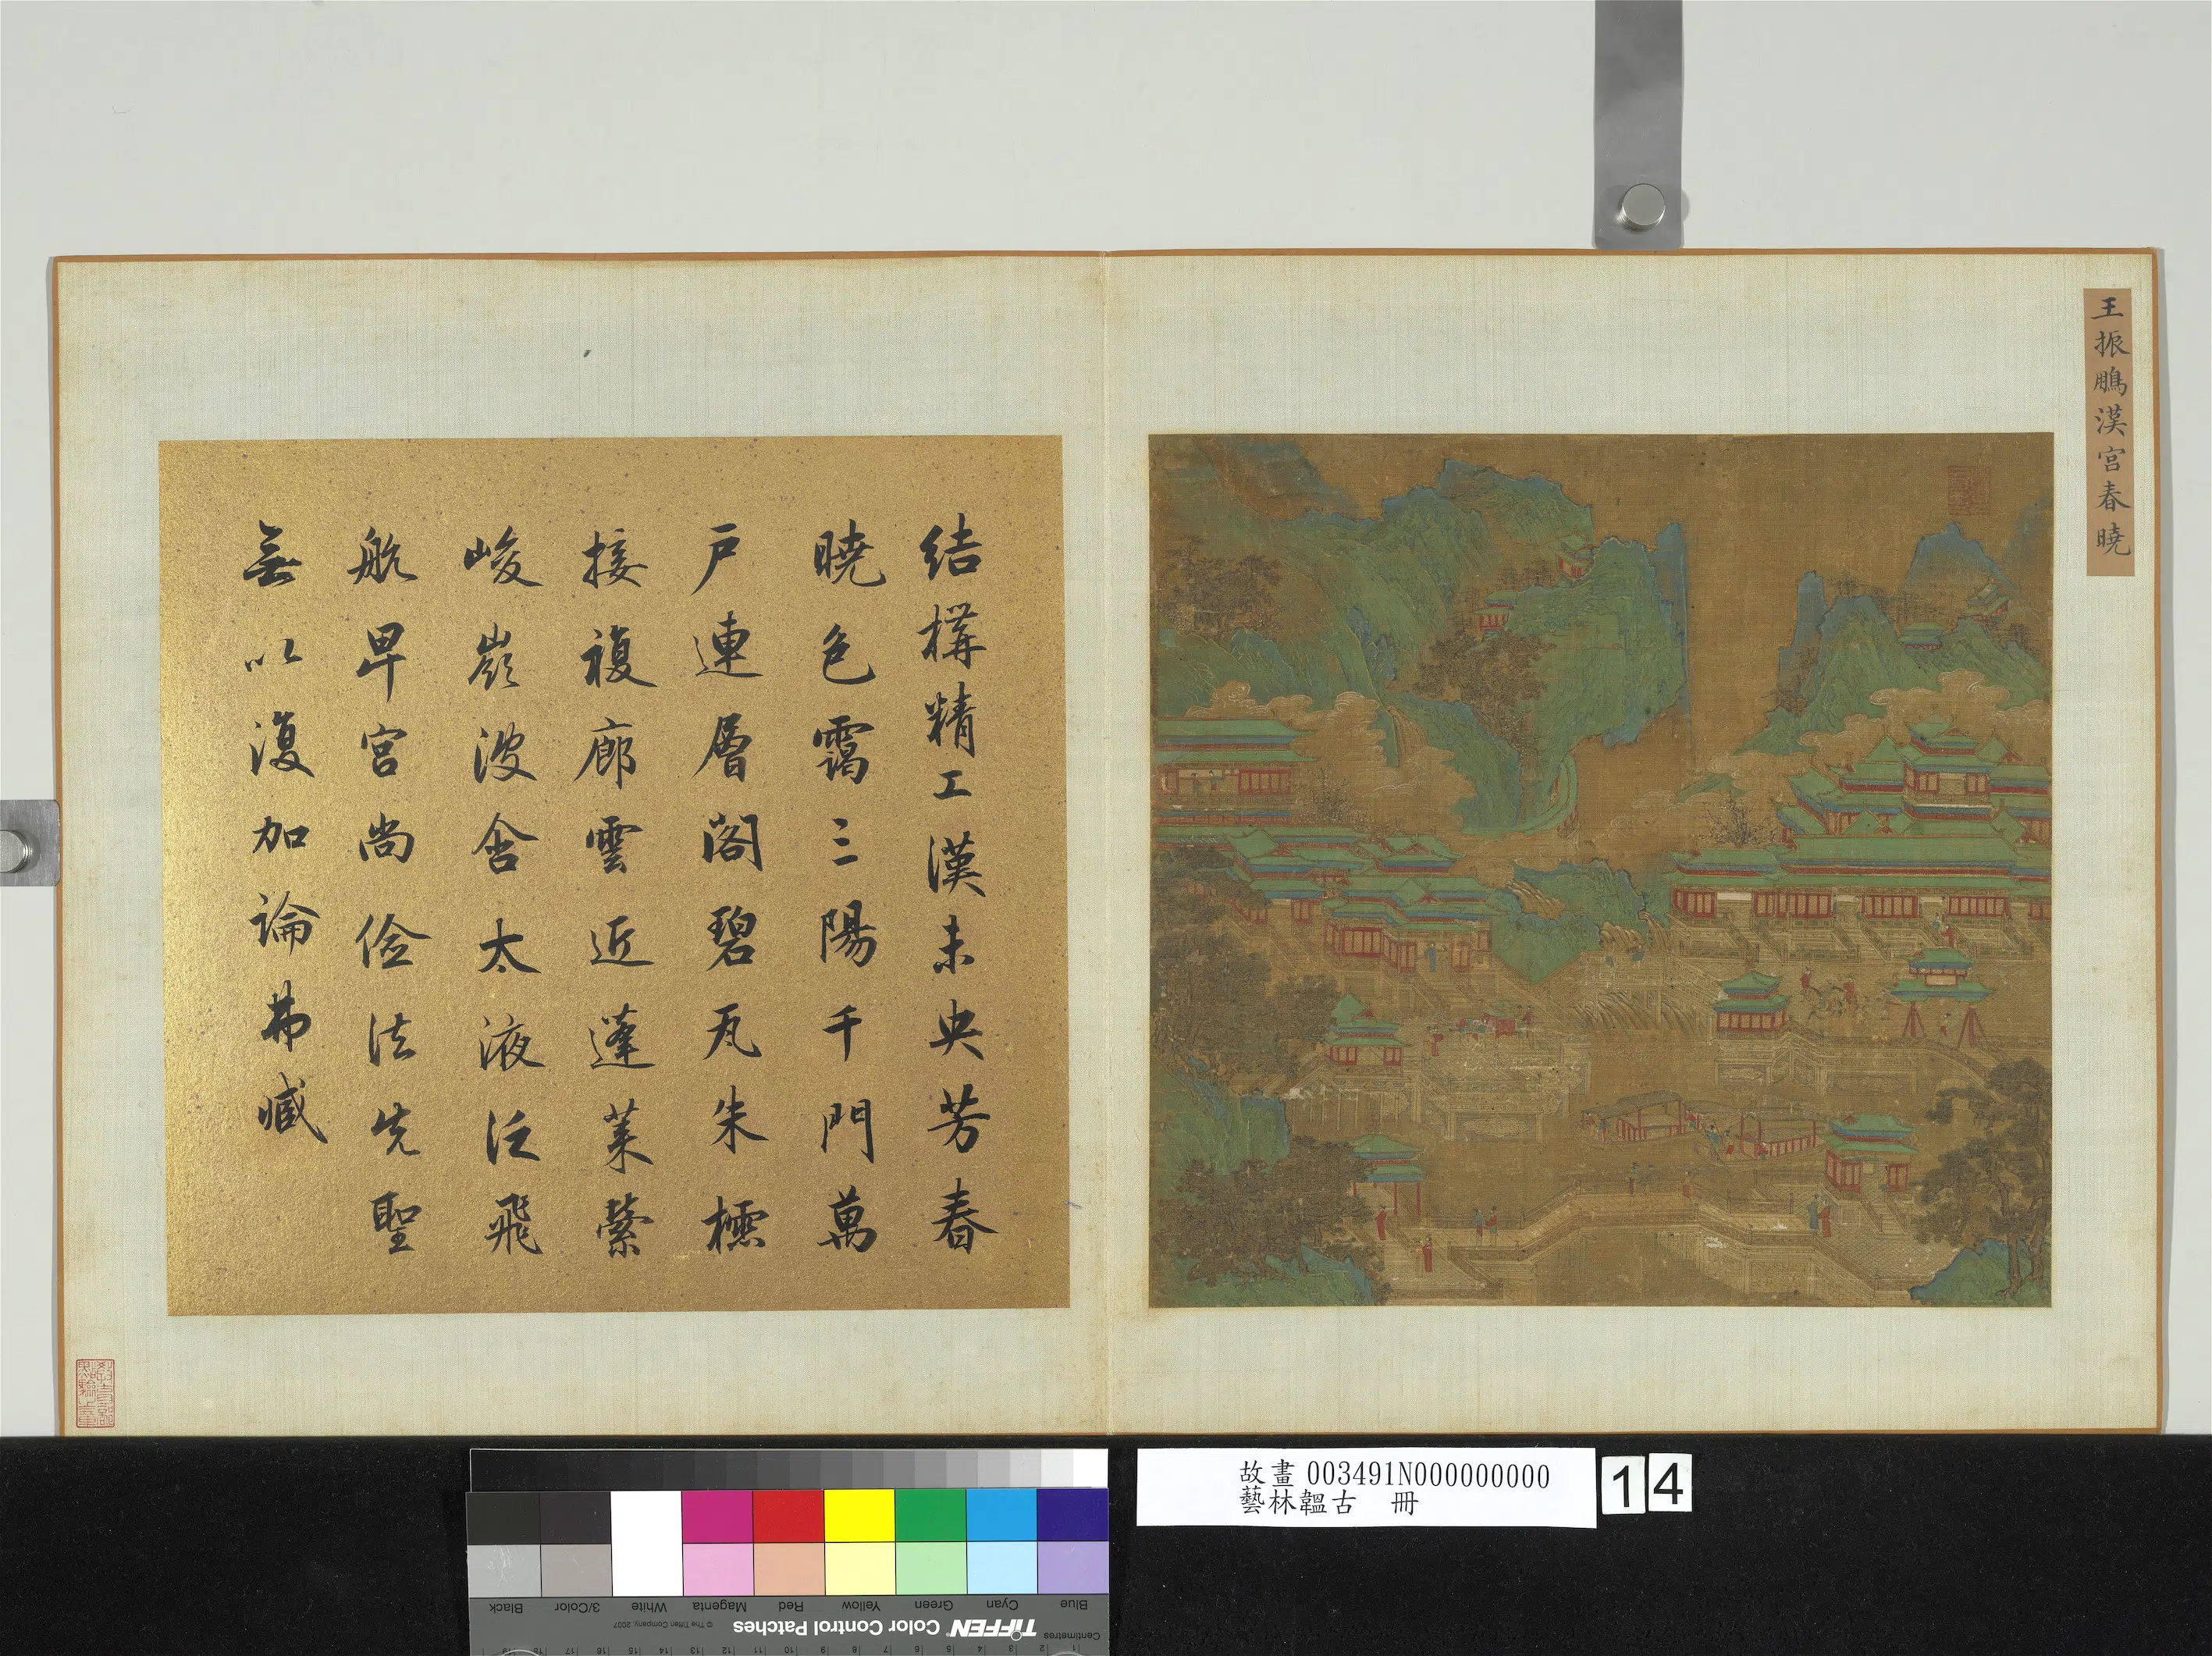 王振鵬漢宮春曉
結構精工漢未央芳春
曉色靄三陽千門萬
戶連層閣碧瓦朱櫺
接複廊雲近蓬萊縈
峻嶺波含太液泛飛
航早宮尚儉法先聖
無以復加論弗臧
故畫003491N000000000
藝林韞古 冊
14
Black 3/Color White Magenta Red Yellow Green Cyan Blue
TIFFEN Color Control Patches © The Tiffen Company, 2007
Centimetres